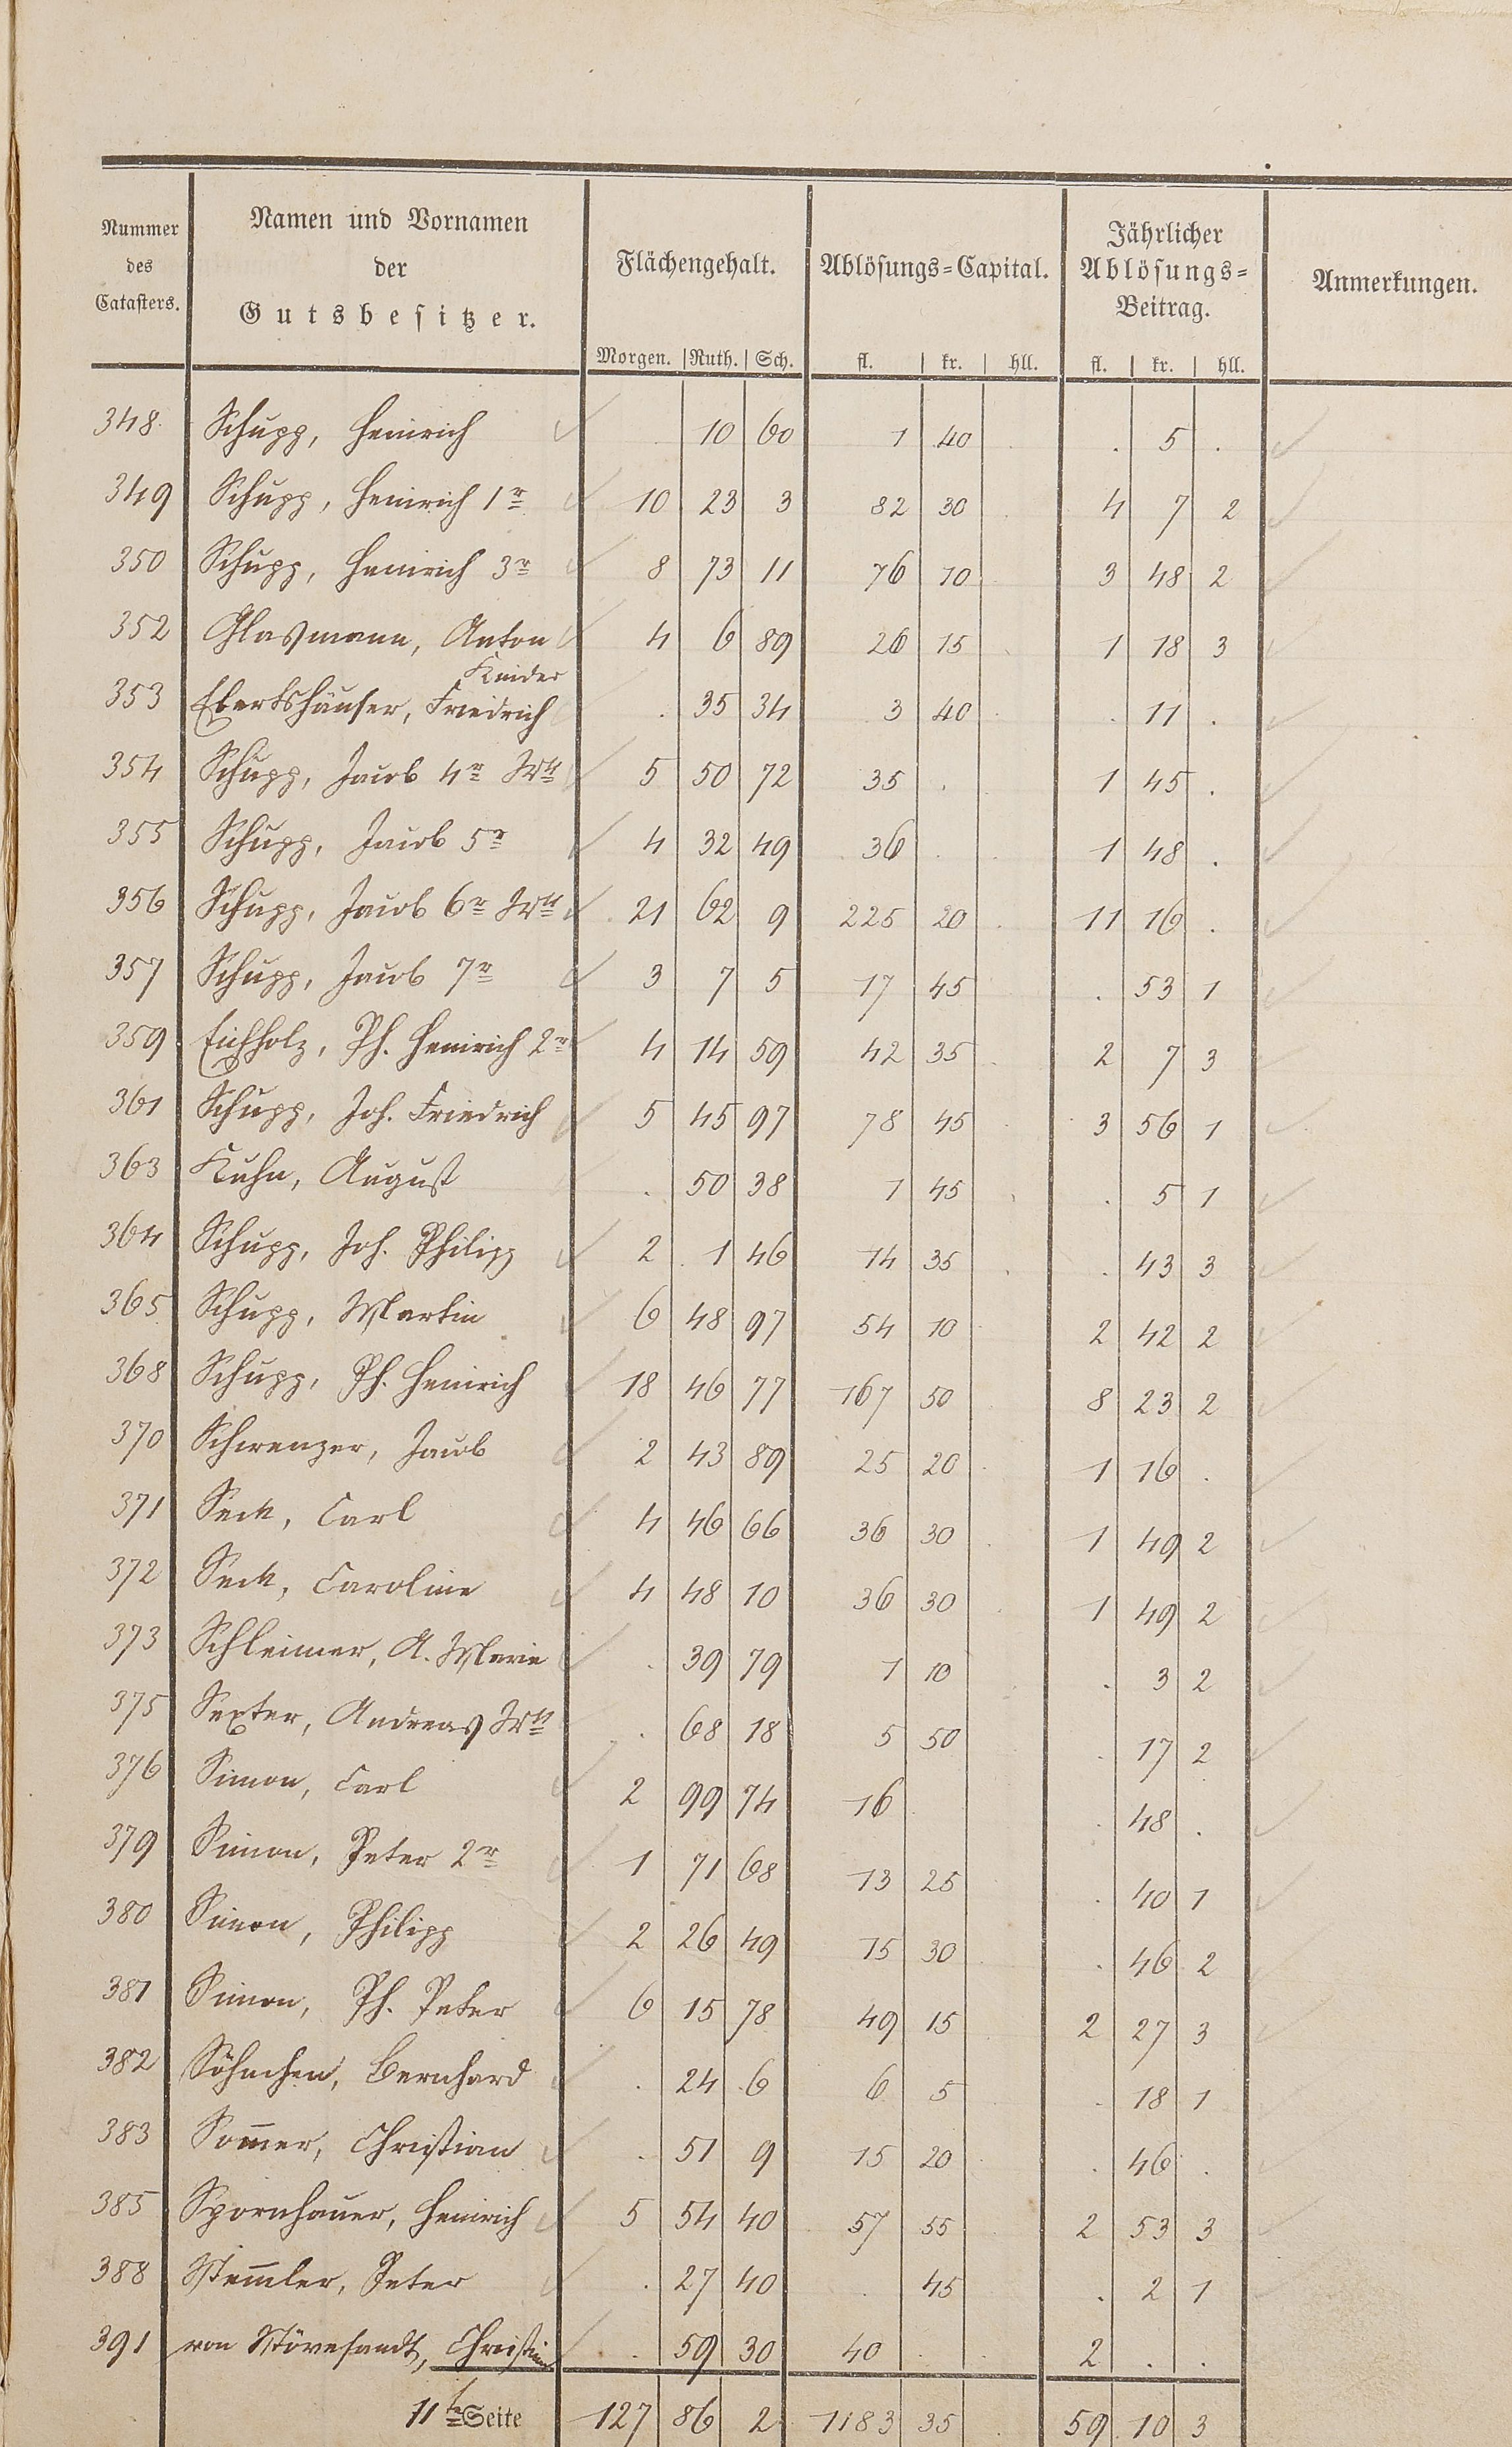 Nummer des Catasters. | Namen und Vornamen der Gutsbesitzer. | Flächengehalt. | Ablösungs=Capital. | Jährlicher Ablösungs=Beitrag. | Anmerkungen.
Morgen. | Ruth. | Sch. | fl. | kr. | hll. | fl. | kr. | hll.
348. Schupp, Heinrich . 10 60 1 40 . . 5 .
349 Schupp, Heinrich 1r 10 23 3 82 30 . 4 7 2
350 Schupp, Heinrich 3r 8 73 11 76 10 . 3 48 2
352 Glasmann, Anton 4 6 89 26 15 . 1 18 3
Kinder
353 Ebertshäuser, Friedrich . 35 34 3 40 . . 11 .
354 Schupp, Jacob 4r Wtt 5 50 72 35 . . 1 45 .
355 Schupp, Jacob 5r 4 32 49 36 . . 1 48 .
356 Schupp, Jacob 6r Wtt 21 62 9 225 20 . 11 16 .
357 Schupp, Jacob 7r 3 7 5 17 45 . . 53 1
359 Eichholz, Ph. Heinrich 2r 4 14 59 42 35 . 2 7 3
361 Schupp, Joh. Friedrich 5 45 97 78 45 . 3 56 1
363 Kuhn, August . 50 38 1 45 . . 5 1
364 Schupp, Joh. Philipp 2 1 46 14 35 . . 43 3
365 Schupp, Martin 6 48 97 54 10 . 2 42 2
368 Schupp, Ph. Heinrich 18 46 77 167 50 8 23 2
370 Schwenzer, Jacob 2 43 89 25 20 . 1 16 .
371 Seck, Carl 4 46 66 36 30 . 1 49 2
372 Seck, Caroline 4 48 10 36 30 . 1 49 2
373 Schleimer, A. Marie . 39 79 1 10 . . 3 2
375 Sexter, Andreas Wtt . 68 18 5 50 . 17 2
376 Simon, Carl 2 99 74 16 . 48 .
379 Simon, Peter 2r 1 71 68 13 25 . 40 1
380 Simon, Philipp 2 26 49 15 30 . . 46 2
381 Simon, Ph. Peter 6 15 78 49 15 2 27 3
382 Söhnchen, Bernhard . 24 6 6 5 . 18 1
383 Som̅er, Christian . 51 9 15 20 . . 46 .
385 Spornhauer, Heinrich 5 54 40 57 55 2 53 3
388 Stem̅ler, Peter . 27 40 . 45 . 2 1
391 von Stövesandt, Christian . 59 30 40 . . 2 . .
11te Seite 127 86 2 1183 35 . 59 10 3